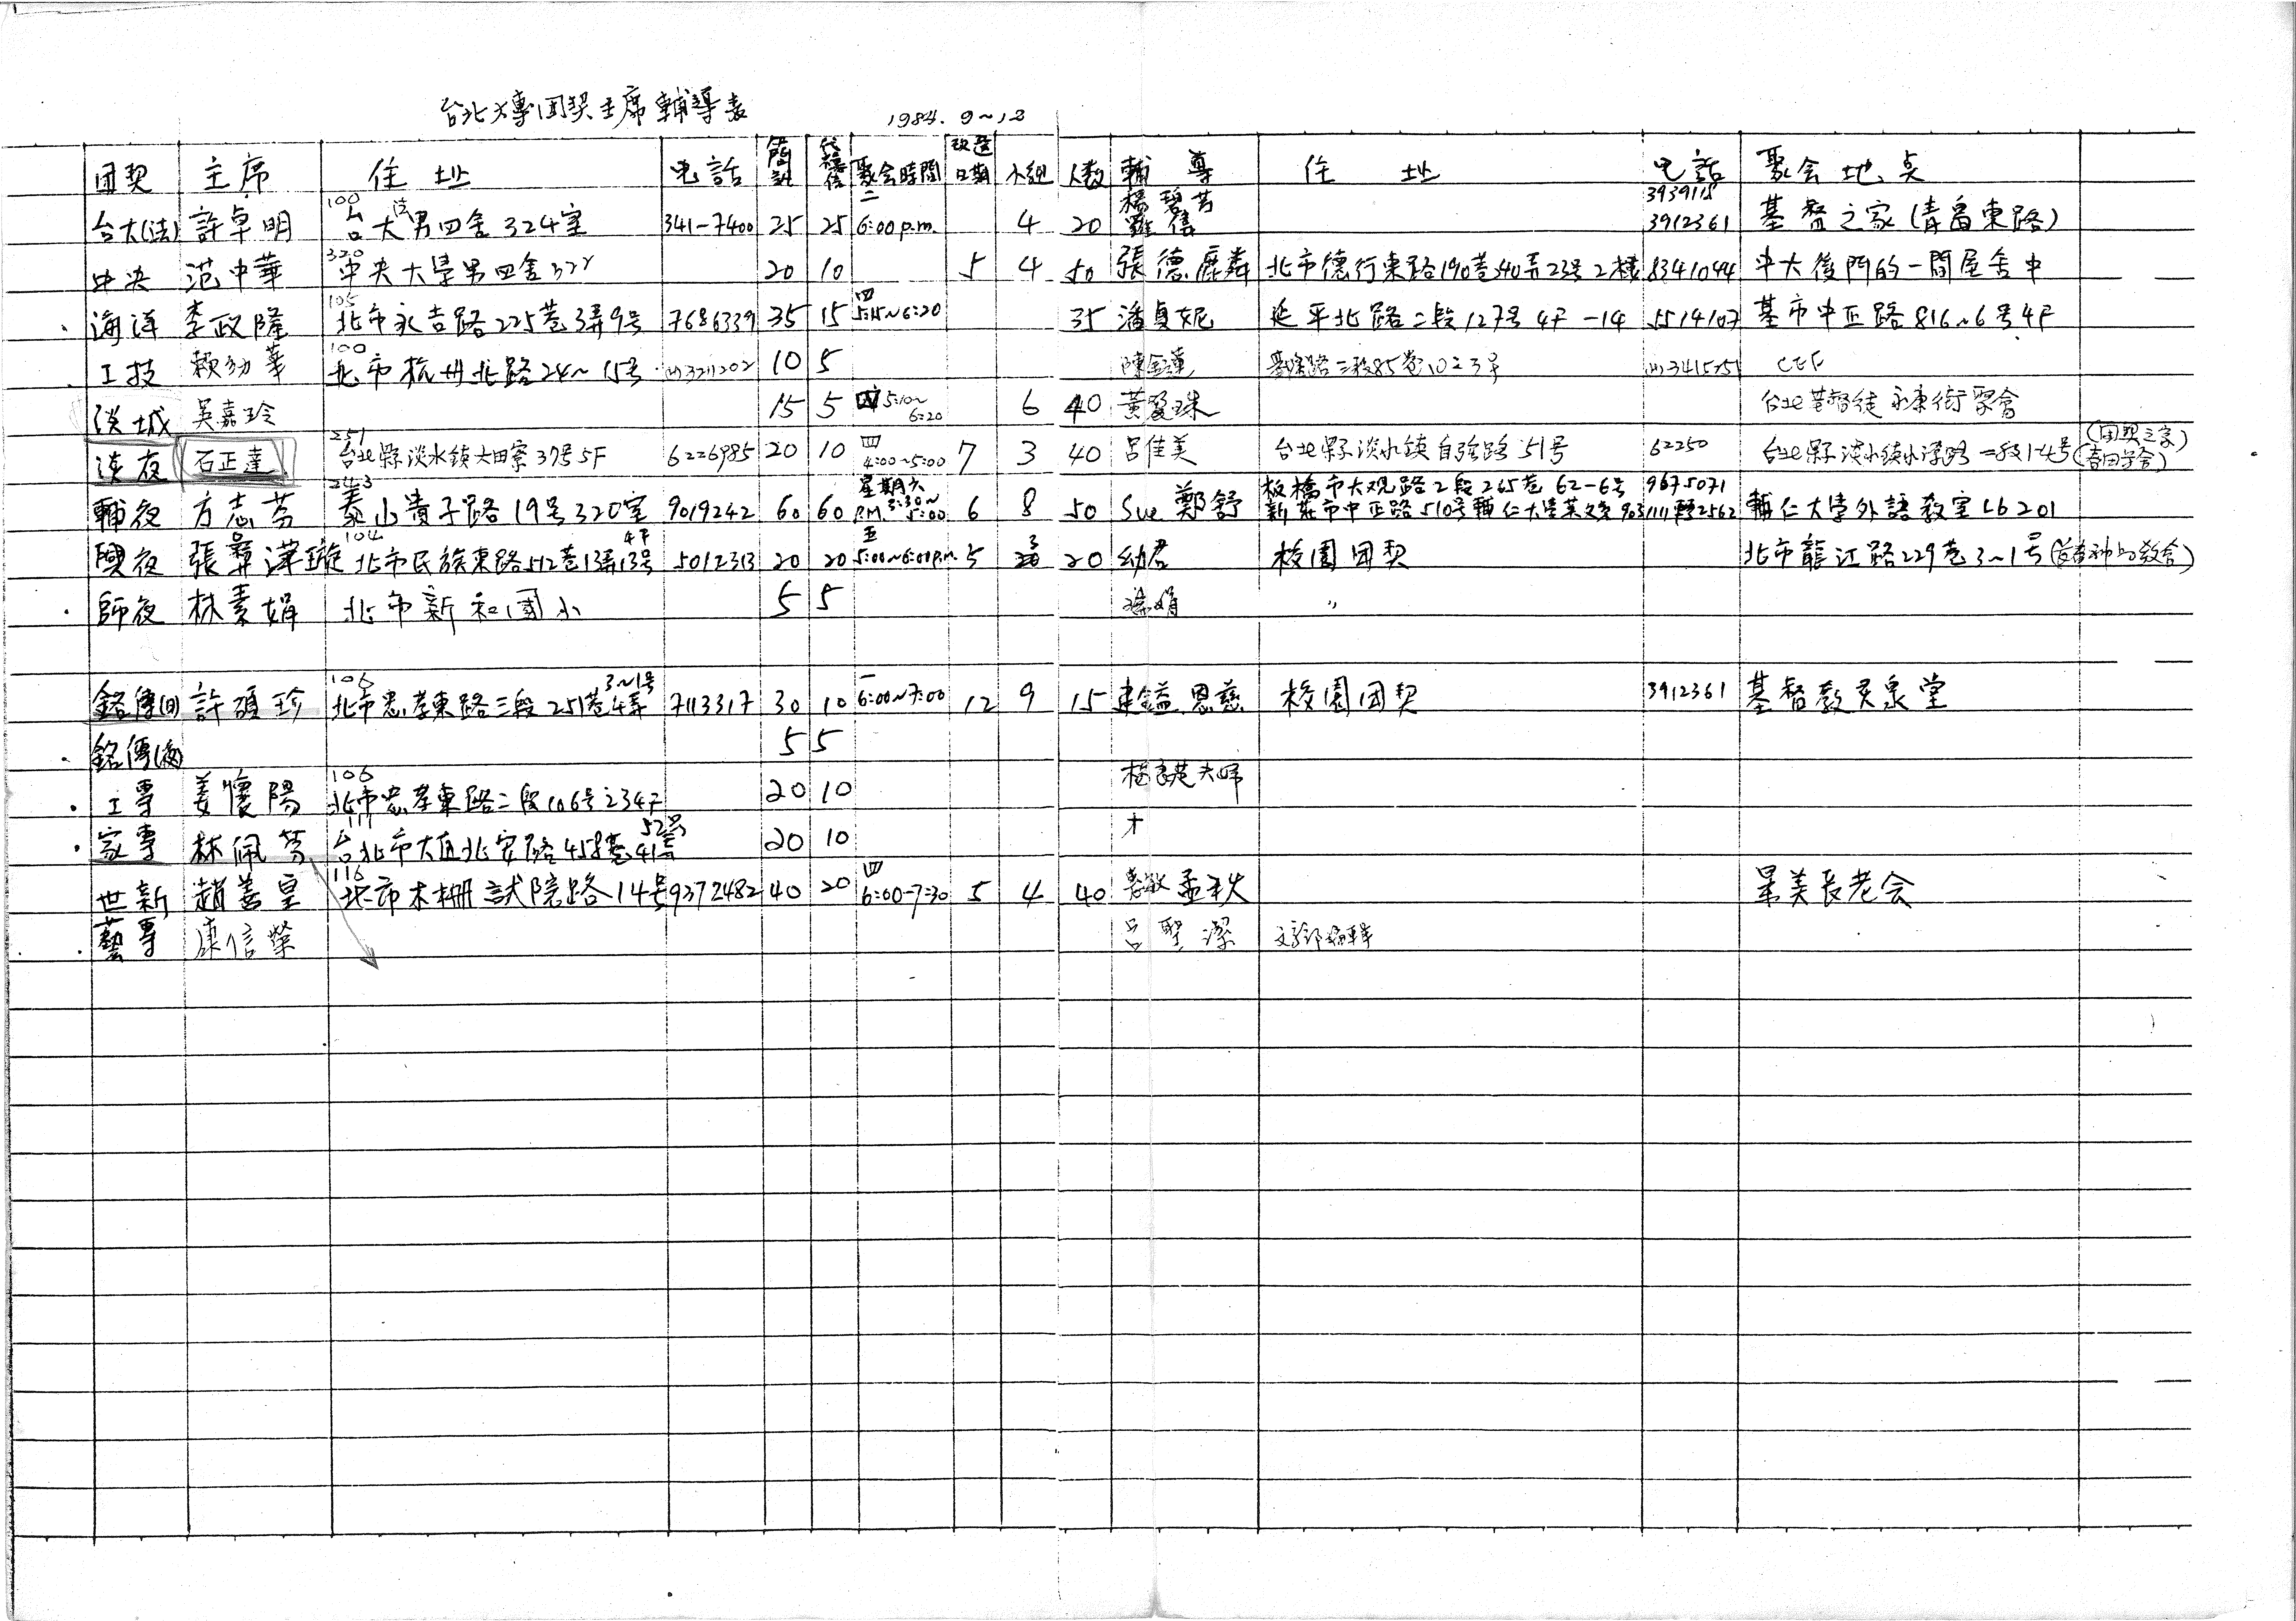 台北大專团契主席輔導表 1984. 9~12
团契 主席 住址 电話 簡訊 代禱信 聚会時間 改選日期 小組 人数 輔導 住址 电話 聚会地点
台大(法) 許卓明 100 台大法男四舍324室 341-7400 25 25 二 6:00 p.m. 4 20 楊碧芳 3939118 3912361 基督之家(青島東路)
中央 范中華 320 中央大學男四舍322 20 10 5 4 50 張德麟 北市德行東路190巷40弄23号2樓 8341044 中大後門的一間屋舍中
海洋 李政隆 105 北市永吉路225巷3弄9号 7686339 35 15 四 5:15~6:20 35 潘貞妮 延平北路二段127号4F-14 5514107 基市中正路816~6号4F
工技 賴幼華 100 北市杭州北路24~15号 3211202 10 5 陳金蓮 CEF
淡城 吳嘉玲 15 5 四 5:10~6:20 6 40 黃愛珠 台北基督徒永康街聚會
淡夜 石正達 251 台北縣淡水鎮大田寮37号5F 6226985 20 10 四 4:00~5:00 7 3 40 呂佳美 台北縣淡水鎮自強路51号 62250 台北縣淡水鎮水源路一段14号 (团契之家)
輔夜 方志芬 243 泰山貴子路19号320室 9019242 60 60 星期六 P.M. 3:30~5:00 6 8 50 Sue 鄭舒 板橋市大观路2段265巷62-6号 9675071 新莊市中正路510号輔仁大學英文系 9031111轉2562 輔仁大學外語教室LB201
興夜 張彝澤璇 104 北市民族東路512巷13弄13号4F 5012313 20 20 五 5:00~6:00 p.m. 5 3 20 幼君 校園团契 北市龍江路229巷3~1号
師夜 林素娟 北市新和國小 5 5 〃
銘傳(日) 許碩珍 106 北市忠孝東路三段251巷4弄3~1号 7113317 30 10 一 6:00~7:00 12 9 15 建鎰 恩慈 校園团契 3912361 基督教灵泉堂
銘傳(夜) 5 5
工專 姜懷陽 106 北市忠孝東路二段106号之34F 20 10
家專 林佩芳 台北市大直北安路458巷41弄52号 20 10
世新 趙善皇 116 北市木柵試院路14号 9372482 40 20 四 6:00-7:30 5 4 40 孟秋 景美長老会
藝專 康信榮 呂聖潔 文字部編輯